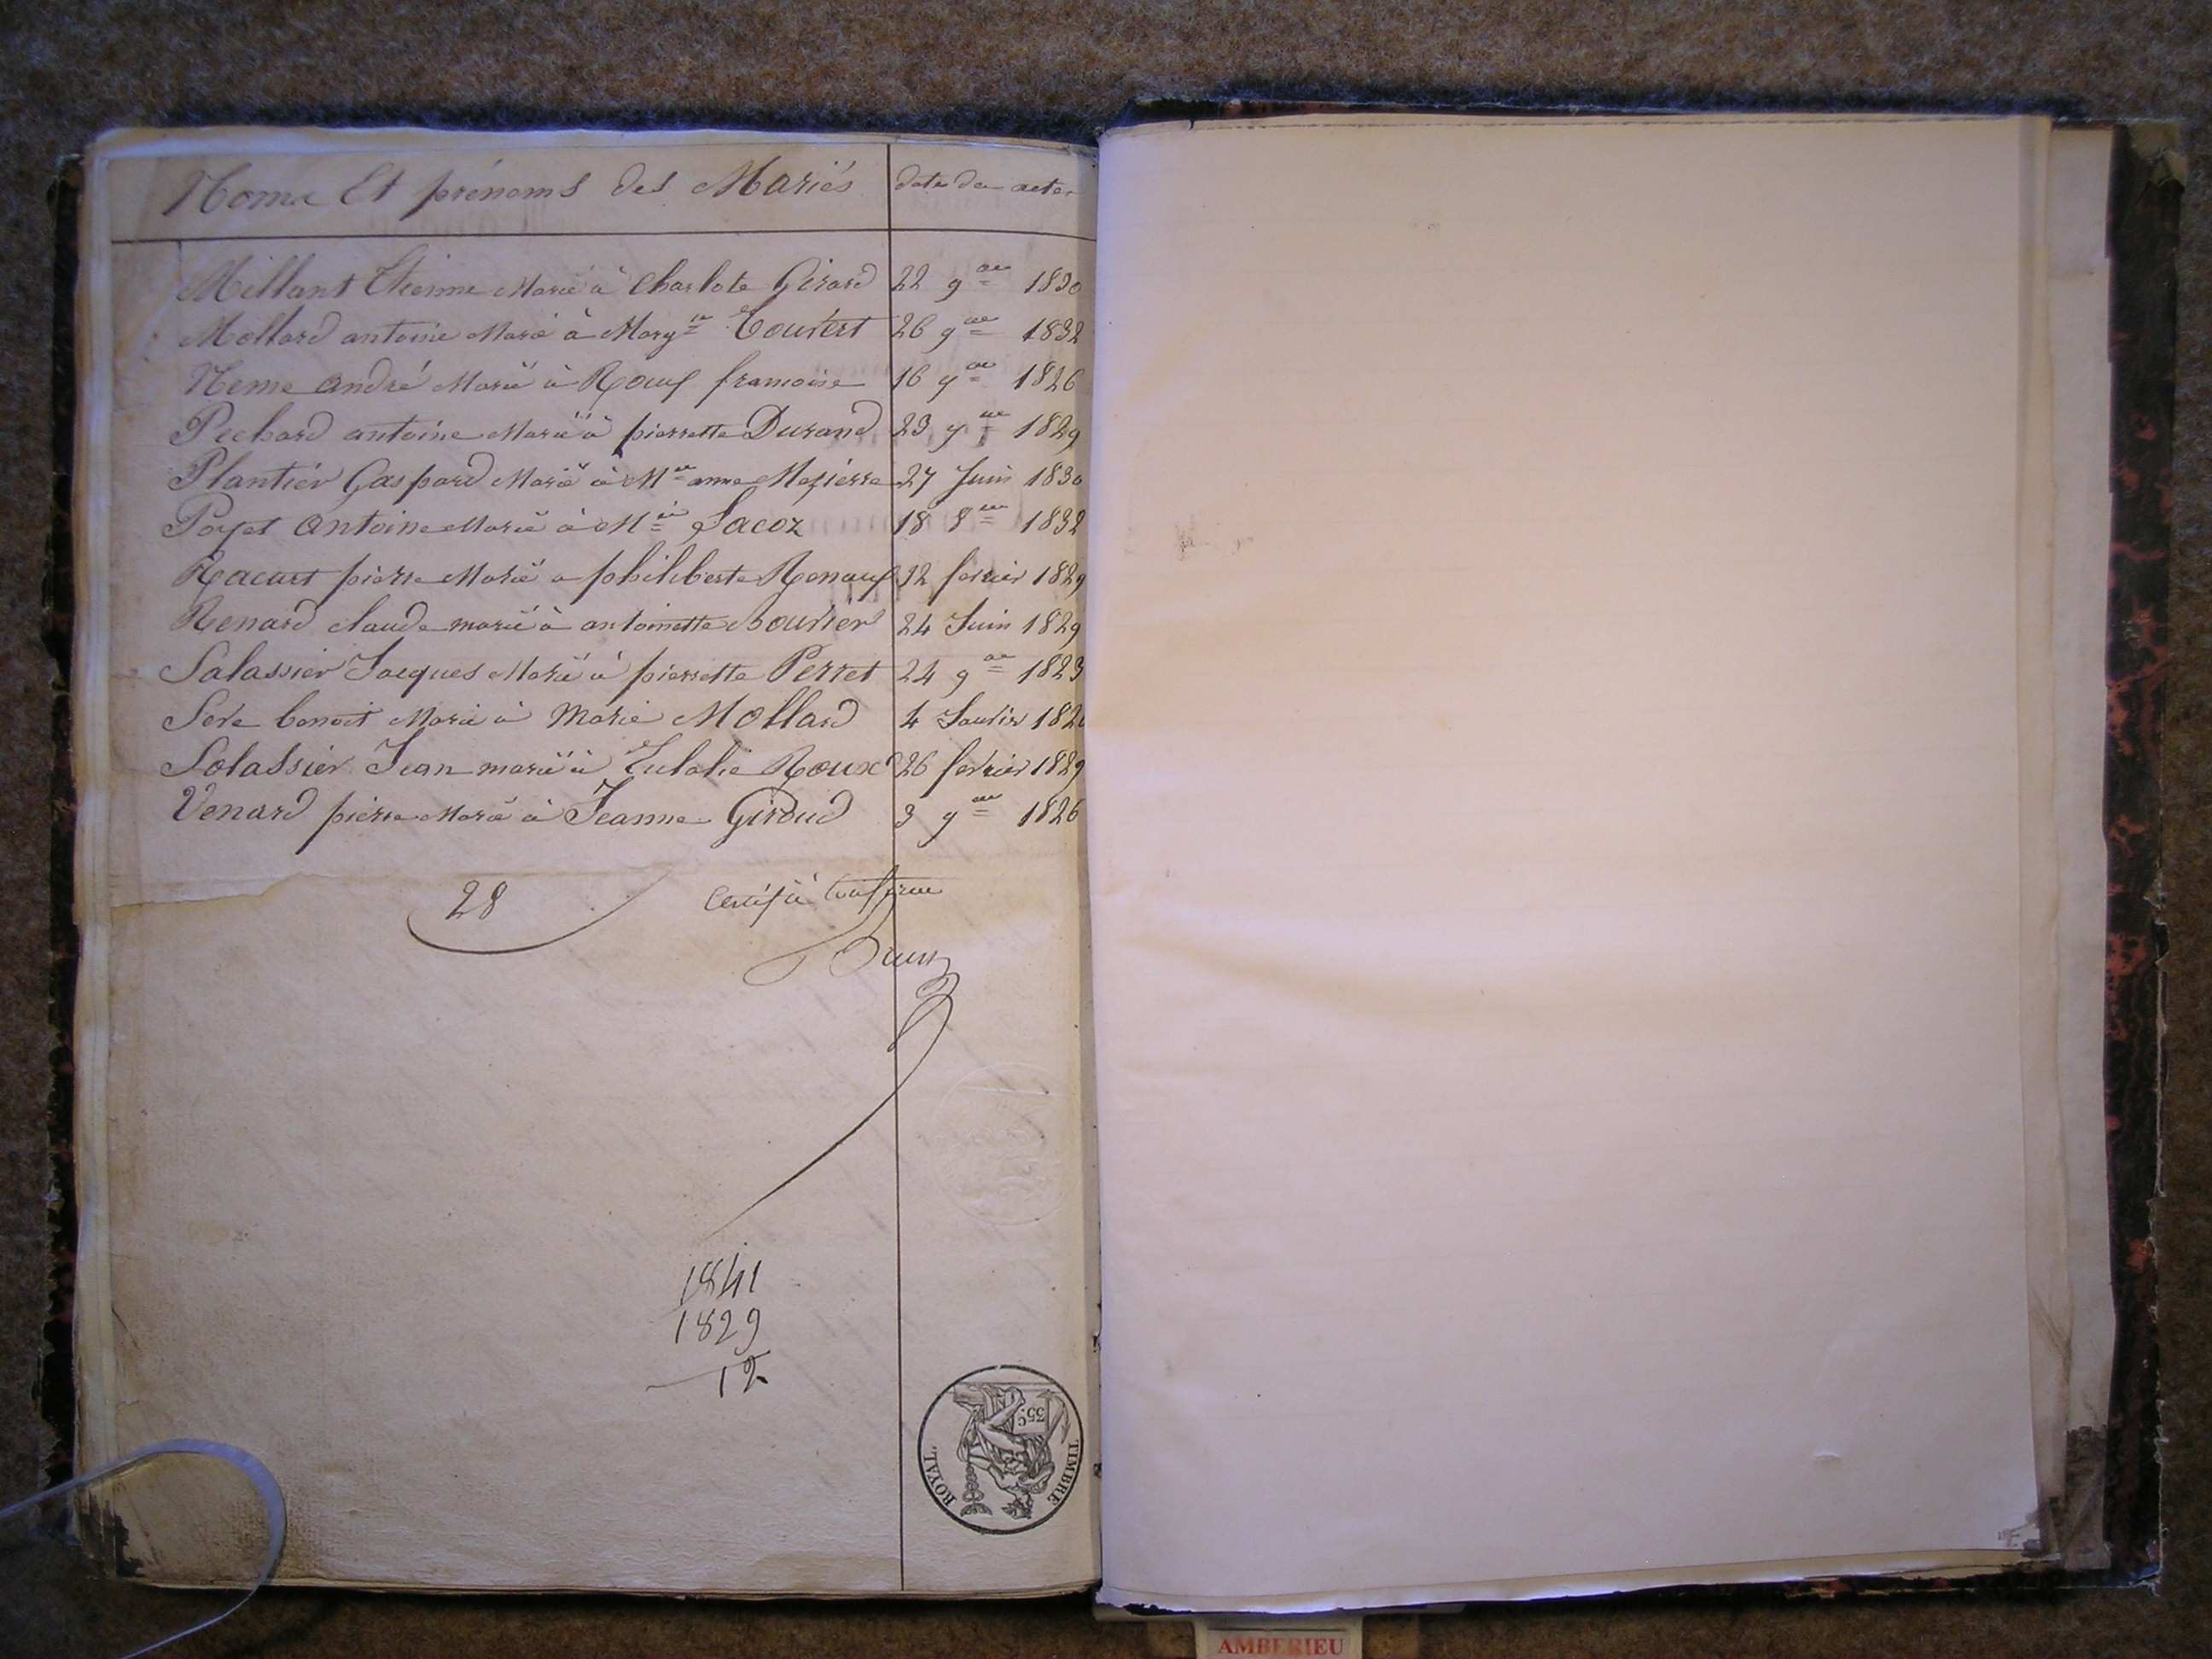 Noms Et prénoms des Mariés date des actes
Millant Etienne Marié à Charlote Girard 22 9bre 1830
Mollard antoine Marié à Marg.te Fouvert 26 9bre 1832
Neme andré Marié à Rouf francoise 16 9bre 1826
Pechard antoine Marié à pierrette Durand 23 9bre 1829
Plantier Gaspard Marié à Mie anne Mezierre 27 Juin 1830
Poyet antoine Marié à Mie Lacoz 18 8bre 1832
Racurt pierre Marié a philiberte Renouf 12 fevrier 1829
Renard claude marié à antoinette Bouvier 24 Juin 1829
Salassier Jacques Marié à pierrette Perret 24 9bre 1823
Seve benoit Marié à Marie Mollard 4 Janvier
Solassier Jean marié à Eulalie Roux 26 fevrier 1829
Venard pierre Marié à Jeanne Giroud 3 9bre 1826
28 Certifié Conforme
1841
1829
12
35c
TIMBRE ROYAL
AMBERIEU